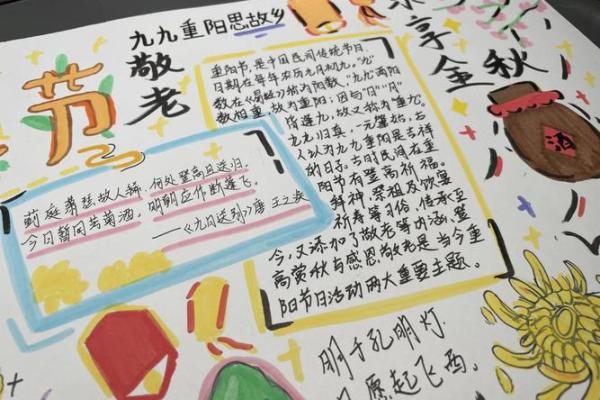 九九重阳思故乡
敬老
节
享
金秋
重阳节,是中国民间传统节日,
日期在每年农历九月初九,"九"
数在《易经》为阳数,"九九"两阳
数相重,故为重阳;因与"日""月"
皆逢九,故又称为"重九"。
九九归真,一元肇始,古
人认为九九重阳是吉祥
的日子。古时民间在重
阳节有登高祈福、
拜神、祭祖及饮宴
祈寿等习俗,传承至
今,又添加了敬老等内涵,登
高赏秋与感恩敬老是当今重
阳节日活动两大重要主题。
蓟庭萧瑟故人稀,何处登高且送归。
今日暂同芳菊酒,明朝应作断蓬飞。
——《九日送别》唐 王之涣
酒
明于孔明灯.
愿起飞西.